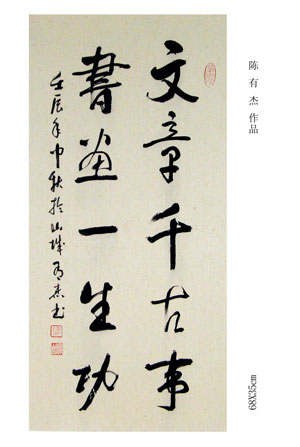 文章千古事
書画一生功
壬辰年中秋於山城有杰书
陈有杰 作品
68X35cm